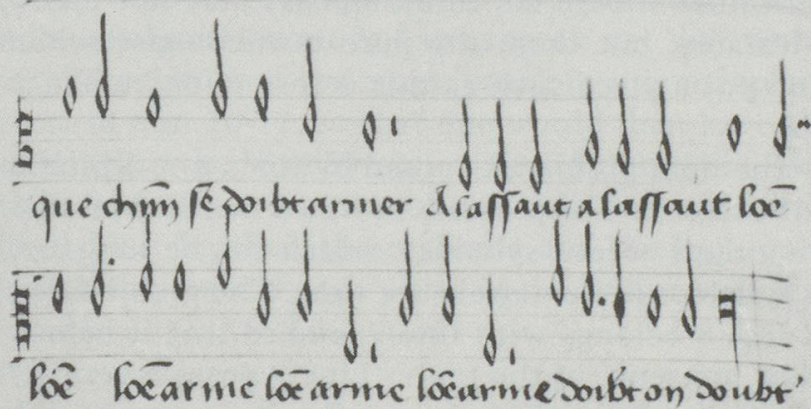 que chūn se doibt armer A lassaut a lassaut loē
loē loē arme loē arme loē arme doibt on doubt